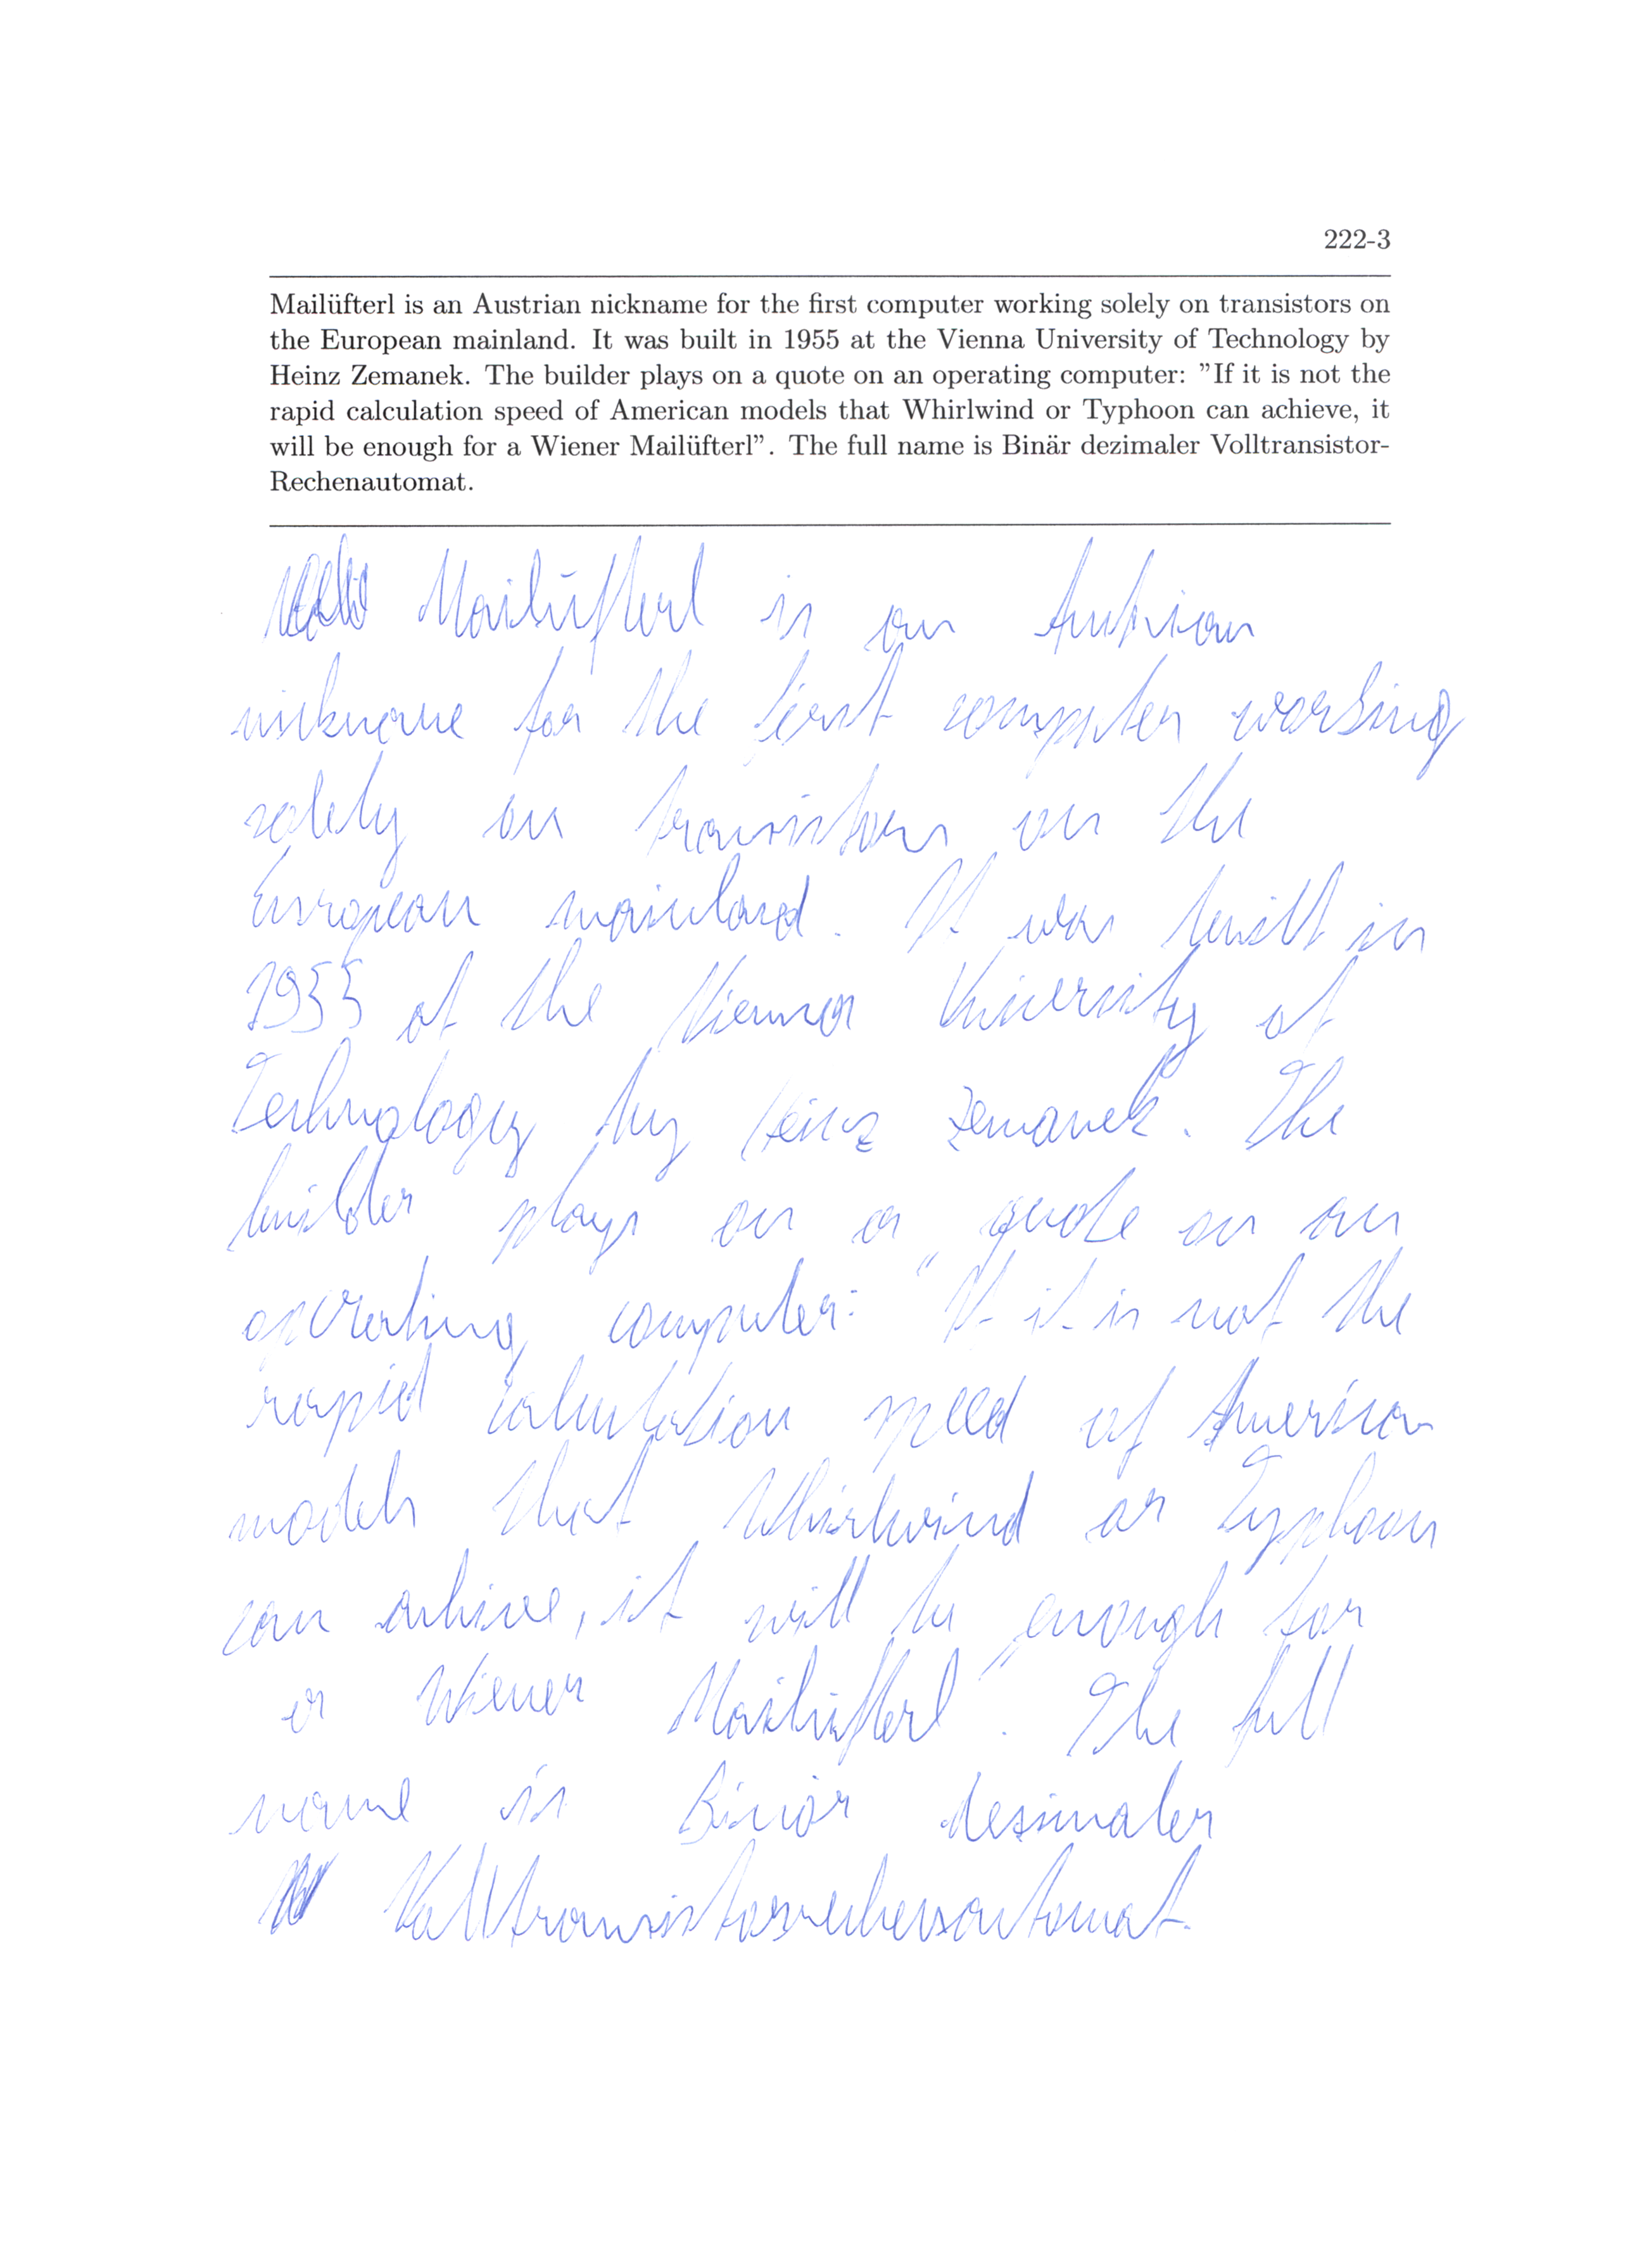 222-3
Mailüfterl is an Austrian nickname for the first computer working solely on transistors on
the European mainland. It was built in 1955 at the Vienna University of Technology by
Heinz Zemanek. The builder plays on a quote on an operating computer: "If it is not the
rapid calculation speed of American models that Whirlwind or Typhoon can achieve, it
will be enough for a Wiener Mailüfterl". The full name is Binär dezimaler Volltransistor-
Rechenautomat.
Mailüfterl is an Austrian
nickname for the first computer working
solely on transistors on the
European mainland. It was built in
1955 at the Vienna University of
Technology by Heinz Zemanek. The
builder plays on a quote on an
operating computer: "If it is not the
rapid calculation speed of American
models that Whirlwind or Typhoon
can achive, it will be enough for
a Wiener Mailüfterl". The full
name is Binär dezimaler
Volltransistorrechenautomat.